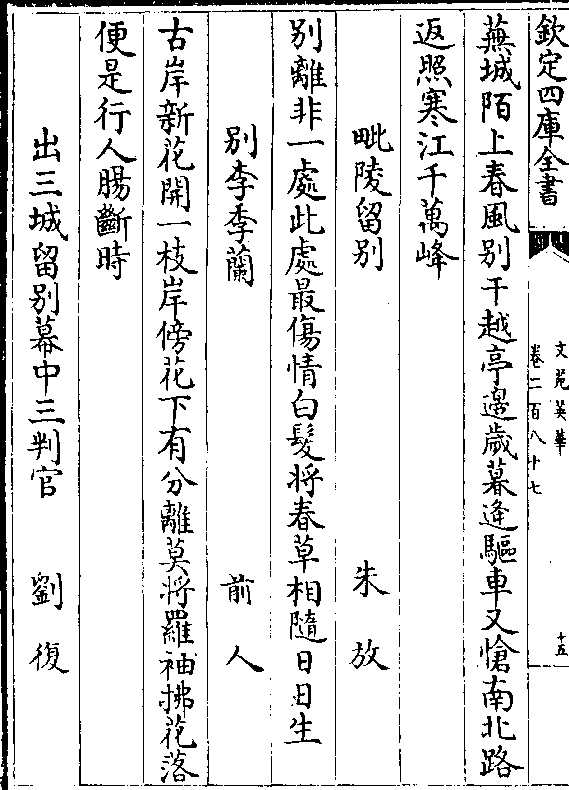 欽定四庫全書
文苑英華
卷二百八十七
十五
蕪城陌上春風别干越亭邉歲暮逢驅車又愴南北路
返照寒江千萬峰
毗陵留别 朱放
别離非一處此處最傷情白髮将春草相隨日日生
别李季蘭 前人
古岸新花開一枝岸傍花下有分離莫将羅袖拂花落
便是行人腸斷時
出三城留别幕中三判官 劉復